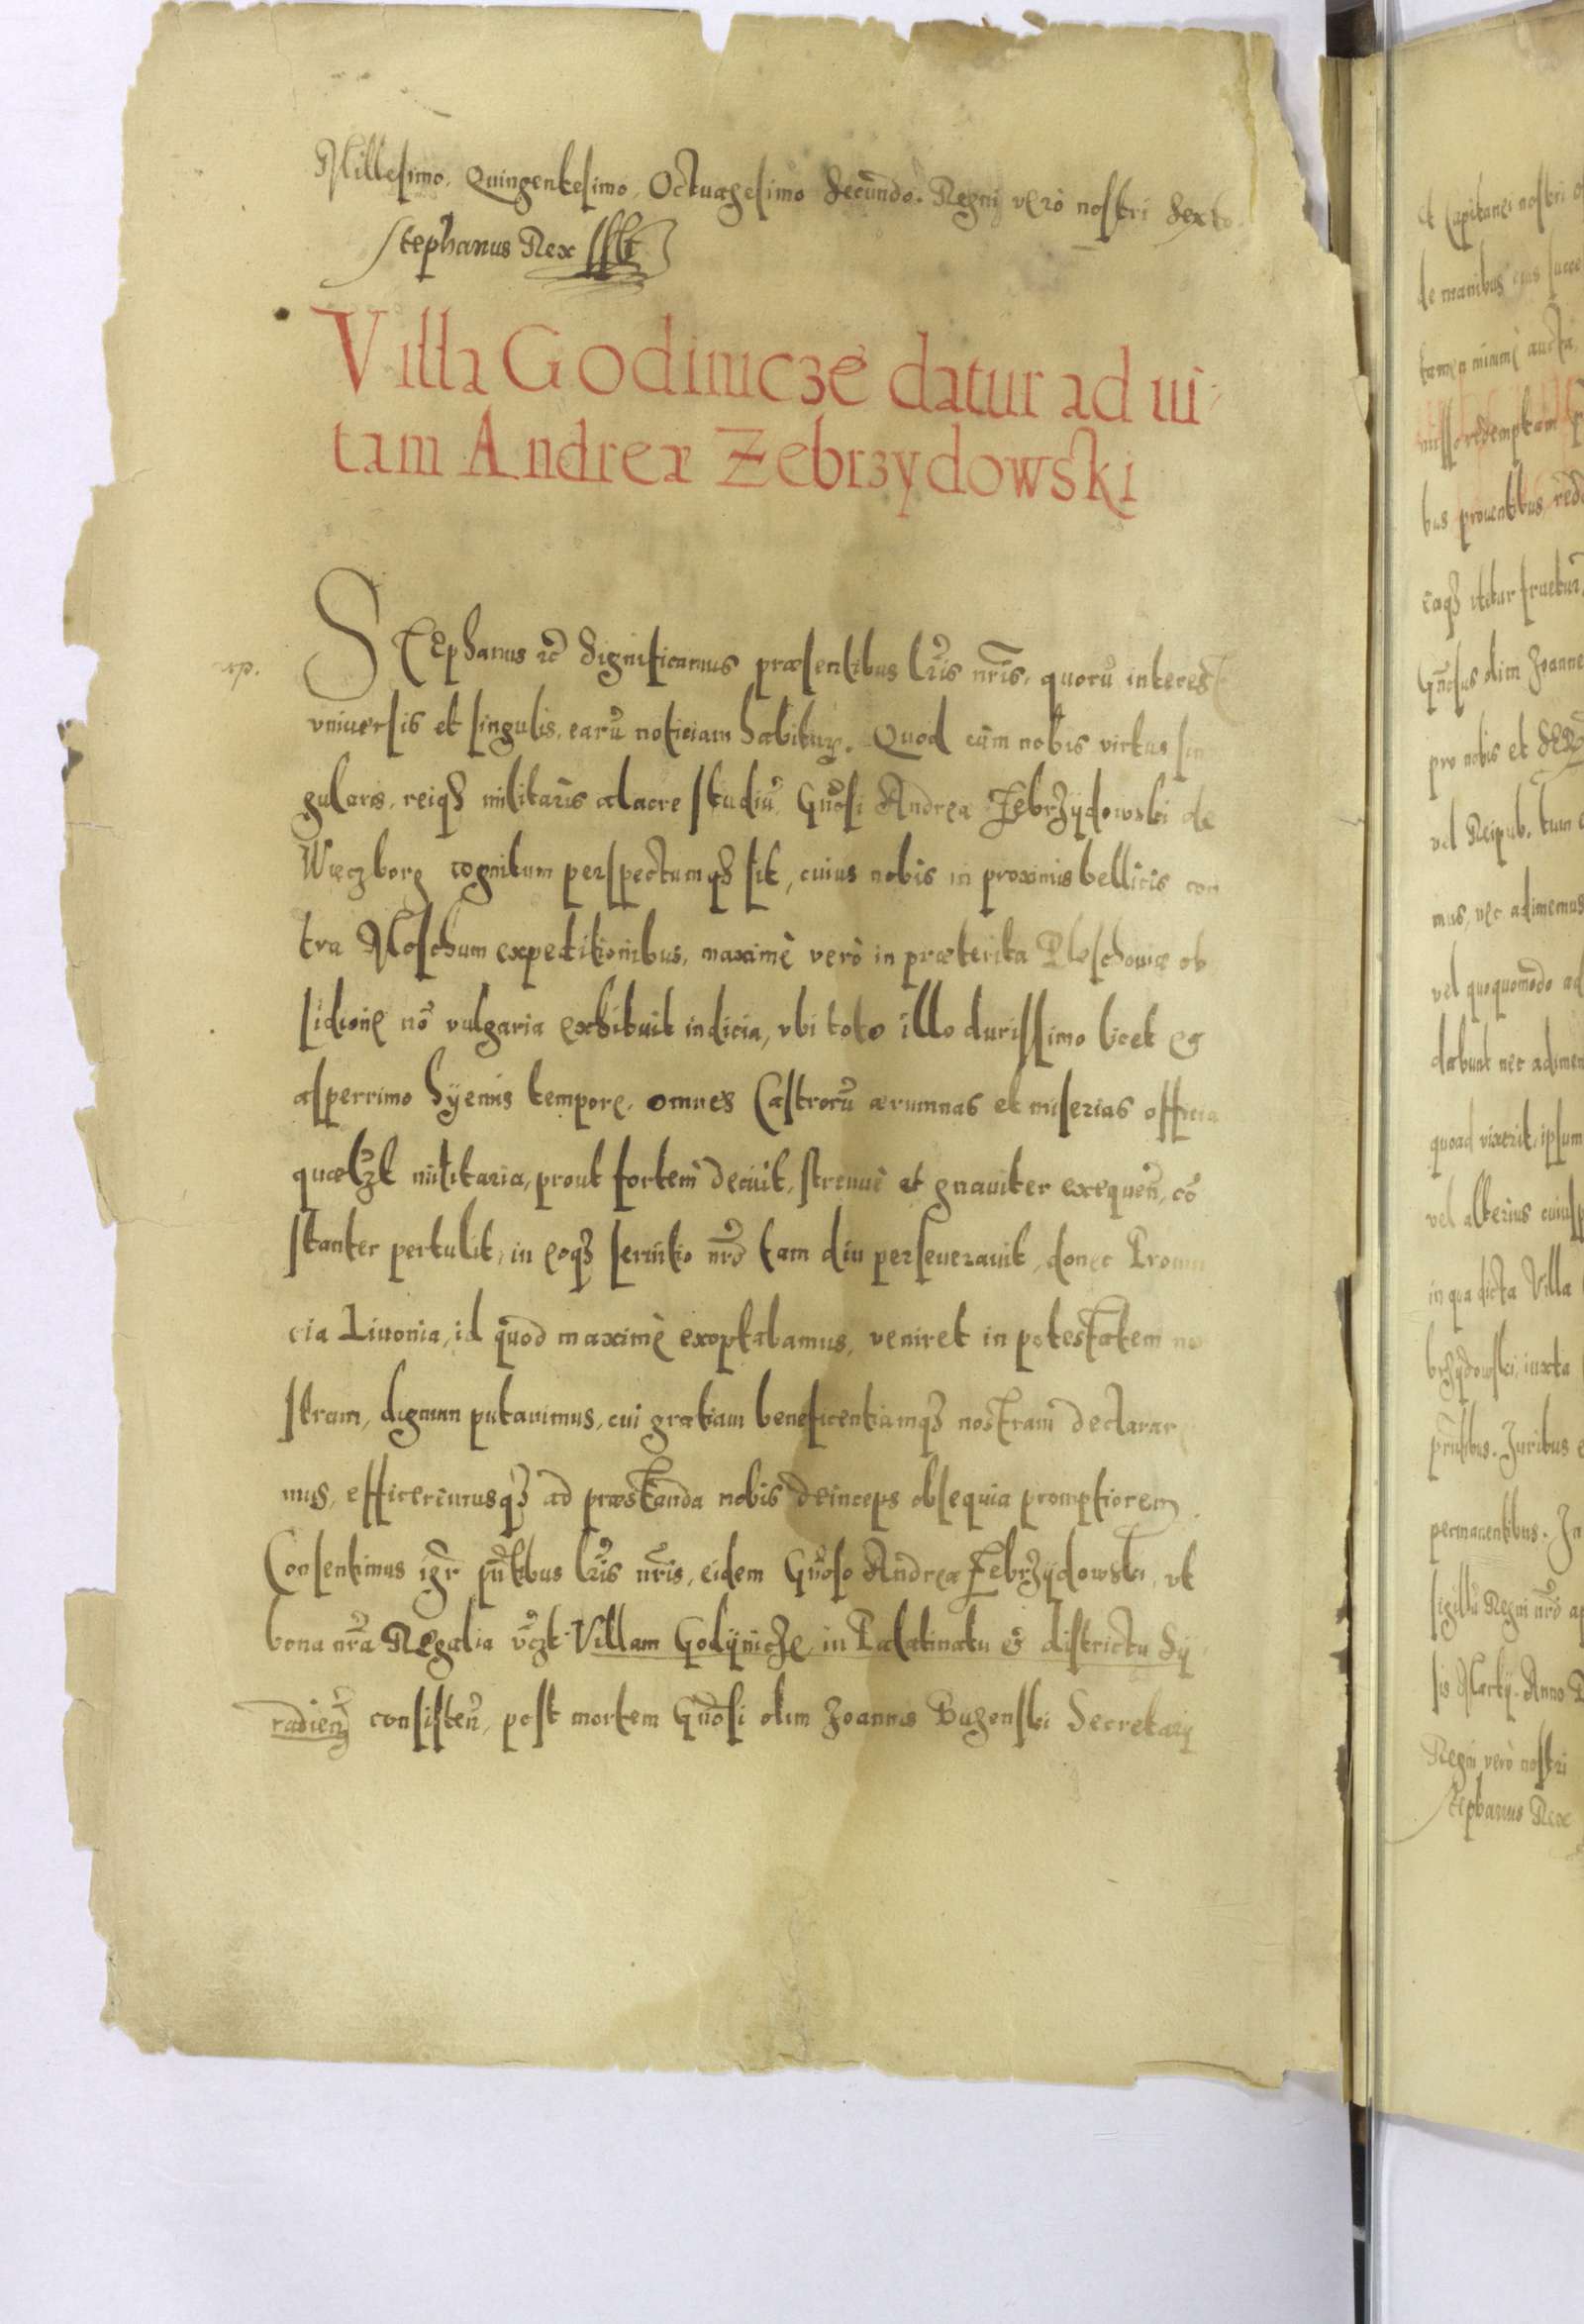 Millesimo. Quingentesimo. Octuagesimo Secundo. Regni verò nostri Sexto.
Stephanus Rex
Villa Godinicze datur ad ui
tam Andreæ Zebrzydowski
STEphanus &c̃ Significamus præsentibus lr̃is nr̃is, quorũ interest
vniuersis et singulis, earũ noticiam habituṛ. Quod cùm nobis virtus sin
gularis, reiqȝ militaris alacre studiũ Gnõsi Andreæ Zebrzÿdowski de
Więczborg cognitum perspectumqȝ sit, cuius nobis in proximis bellicis con
tra Moschum expeditionibus, maximè verò in præterita Pleschouiæ ob
sidione nõ vulgaria exhibuit indicia, vbi toto illo durissimo licet &
asperrimo hÿemis tempore, omnes Castrorũ ærumnas et miserias officia
quælȝt militaria, prout fortem decuit, strenuè et gnauiter exequeñ, cõ
stanter pertulit, in eoqȝ seruitio nr̃o tam diu perseuerauit, donec Prouin
cia Liuonia, id quod maximè exoptabamus, veniret in potestatem no
stram, dignum putauimus, cui gratiam beneficentiamqȝ nostram declarare
mus, efficeremusqȝ ad præstanda nobis deinceps obsequia promptiorem.
Consentimus igr̃ pñtibus lr̃is nr̃is, eidem Gnõso Andreæ Zebrzÿdowski, vt
bona nr̃a Regalia vc̃zt Villam Godÿnicze, in Palatinatu & districtu Sÿ
radieñ consisteñ, post mortem Gnõsi olim Joannis Buzenski Secretarÿ
et Capitanei nostri
de manibus eius succe
tamen minimè aucta,
redemptam
bus prouentibus,
eaqȝ vtetur fruetur,
Gnõsus olim Joannes
pro nobis et
vel Reipub. tum
mus, nec adimemus
vel quoquomodo ad
dabunt nec adimen
quoad vixerit, ipsum
vel alterius cuiusp
in qua dicta Villa
brzÿdowski, iuxta
Juribus
permanentibus. In
sigillũ Regni nr̃i
Anno
Regni verò nostri
Stephanus Rex